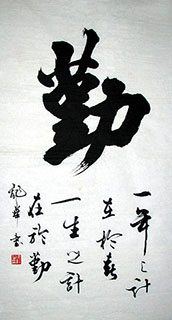 勤
一年之计
在於春
一生之计
在於勤
龍祥書